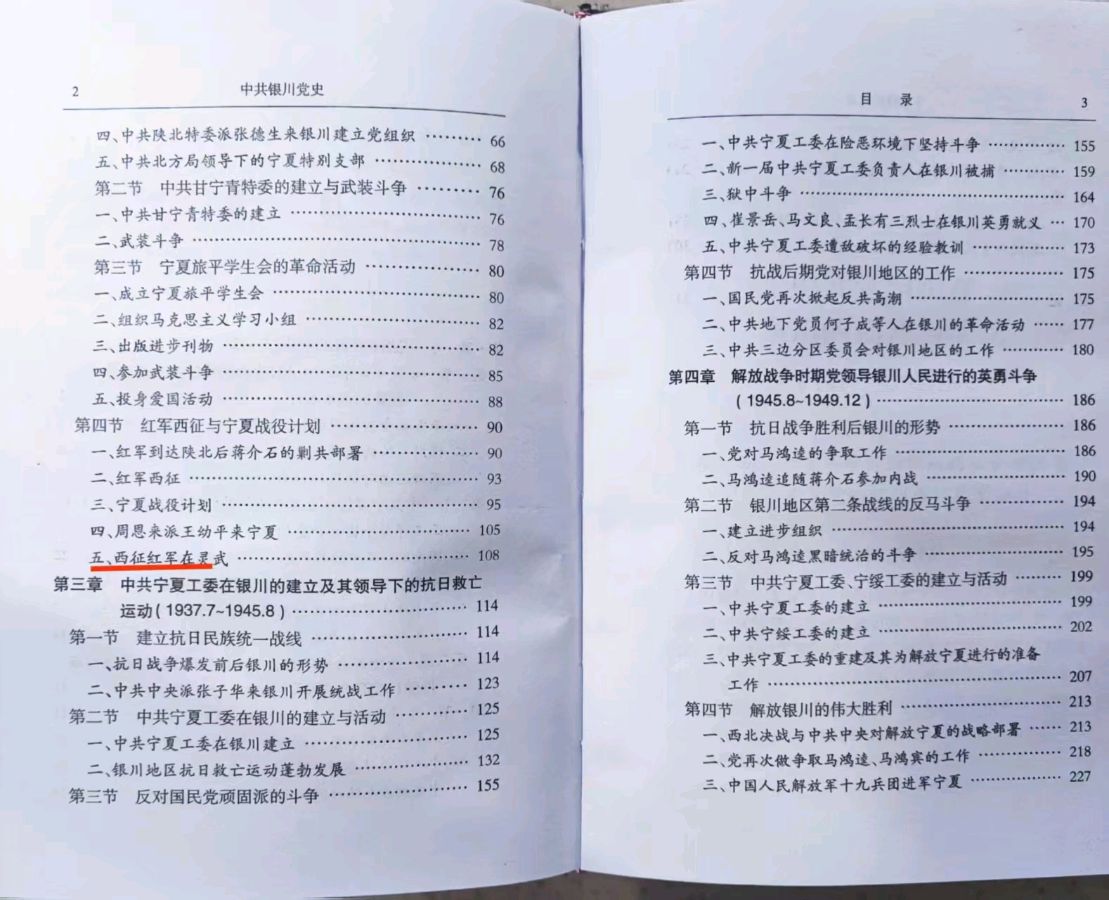 2 中共银川党史
四、中共陕北特委派张德生来银川建立党组织 ……… 66
五、中共北方局领导下的宁夏特别支部 ……… 68
第二节 中共甘宁青特委的建立与武装斗争 ……… 76
一、中共甘宁青特委的建立 ……… 76
二、武装斗争 ……… 78
第三节 宁夏旅平学生会的革命活动 ……… 80
一、成立宁夏旅平学生会 ……… 80
二、组织马克思主义学习小组 ……… 82
三、出版进步刊物 ……… 82
四、参加武装斗争 ……… 85
五、投身爱国活动 ……… 88
第四节 红军西征与宁夏战役计划 ……… 90
一、红军到达陕北后蒋介石的剿共部署 ……… 90
二、红军西征 ……… 93
三、宁夏战役计划 ……… 95
四、周恩来派王幼平来宁夏 ……… 105
五、西征红军在灵武 ……… 108
第三章 中共宁夏工委在银川的建立及其领导下的抗日救亡
运动(1937.7~1945.8) ……… 114
第一节 建立抗日民族统一战线 ……… 114
一、抗日战争爆发前后银川的形势 ……… 114
二、中共中央派张子华来银川开展统战工作 ……… 123
第二节 中共宁夏工委在银川的建立与活动 ……… 125
一、中共宁夏工委在银川建立 ……… 125
二、银川地区抗日救亡运动蓬勃发展 ……… 132
第三节 反对国民党顽固派的斗争 ……… 155
目 录 3
一、中共宁夏工委在险恶环境下坚持斗争 ……… 155
二、新一届中共宁夏工委负责人在银川被捕 ……… 159
三、狱中斗争 ……… 164
四、崔景岳、马文良、孟长有三烈士在银川英勇就义 … 170
五、中共宁夏工委遭敌破坏的经验教训 ……… 173
第四节 抗战后期党对银川地区的工作 ……… 175
一、国民党再次掀起反共高潮 ……… 175
二、中共地下党员何子成等人在银川的革命活动 …… 177
三、中共三边分区委员会对银川地区的工作 ……… 180
第四章 解放战争时期党领导银川人民进行的英勇斗争
(1945.8~1949.12) ……… 186
第一节 抗日战争胜利后银川的形势 ……… 186
一、党对马鸿逵的争取工作 ……… 186
二、马鸿逵追随蒋介石参加内战 ……… 190
第二节 银川地区第二条战线的反马斗争 ……… 194
一、建立进步组织 ……… 194
二、反对马鸿逵黑暗统治的斗争 ……… 195
第三节 中共宁夏工委、宁绥工委的建立与活动 ……… 199
一、中共宁夏工委的建立 ……… 199
二、中共宁绥工委的建立 ……… 202
三、中共宁夏工委的重建及其为解放宁夏进行的准备
工作 ……… 207
第四节 解放银川的伟大胜利 ……… 213
一、西北决战与中共中央对解放宁夏的战略部署 ……… 213
二、党再次做争取马鸿逵、马鸿宾的工作 ……… 218
三、中国人民解放军十九兵团进军宁夏 ……… 227